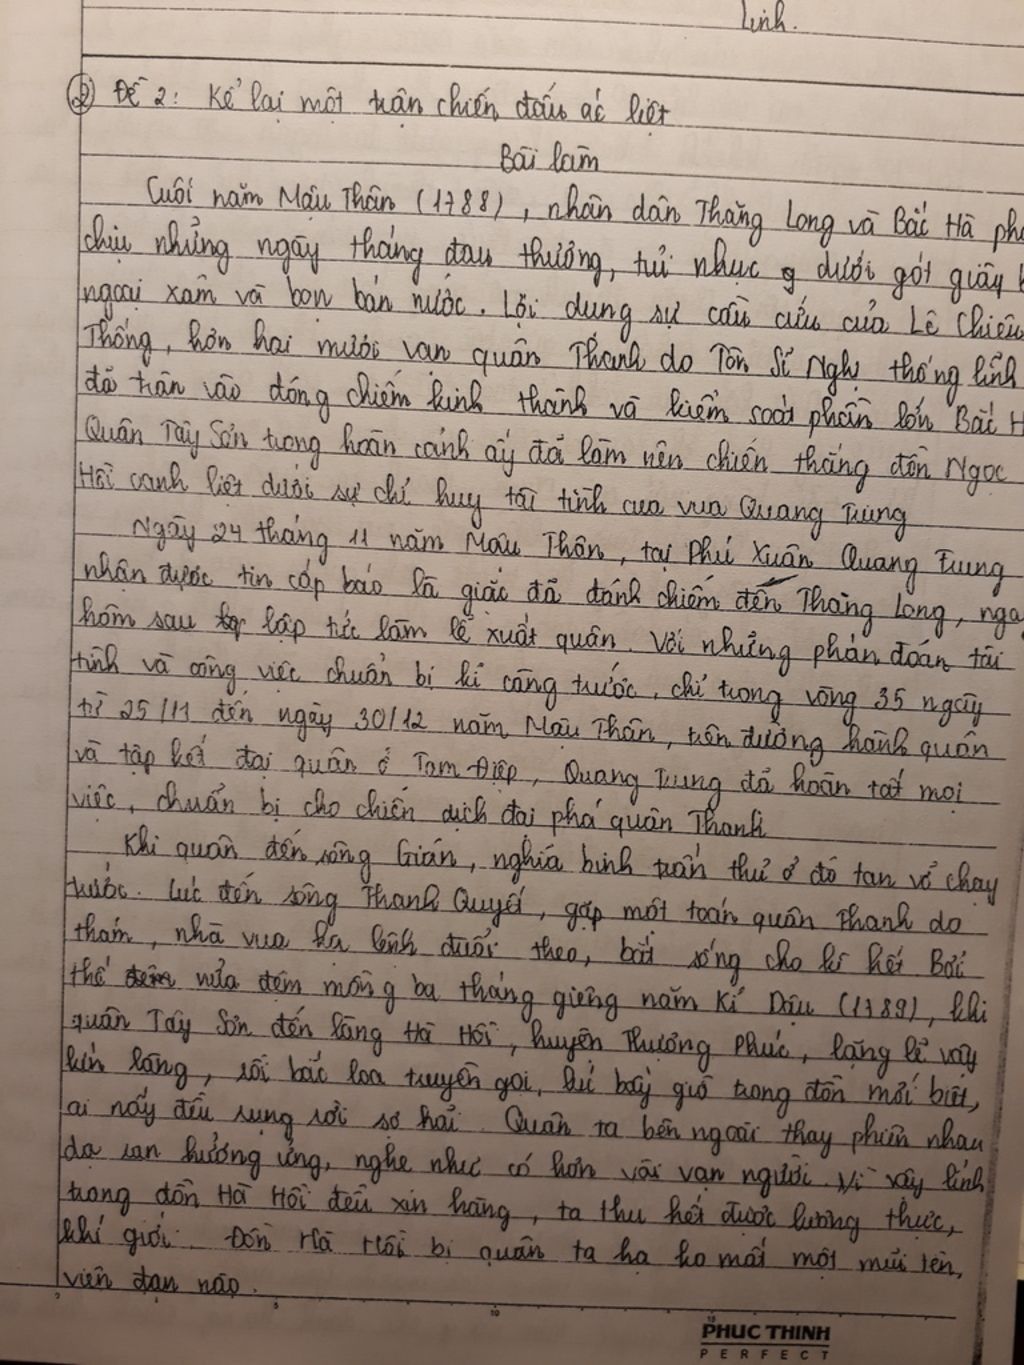 Linh.
② Đề 2: Kể lại một trận chiến đấu ác liệt
Bài làm
Cuối năm Mậu Thân (1788), nhân dân Thăng Long và Bắc Hà
chịu những ngày tháng đau thương, tủi nhục dưới gót giầy
ngoại xâm và bọn bán nước. Lợi dụng sự cầu cứu của Lê Chiêu
Thống, hơn hai mươi vạn quân Thanh do Tôn Sĩ Nghị thống lĩnh
đã tràn vào đóng chiếm kinh thành và kiểm soát phần lớn Bắc H
Quân Tây Sơn trong hoàn cảnh ấy đã làm nên chiến thắng đồn Ngọc
Hồi oanh liệt dưới sự chỉ huy tài tình của vua Quang Trung
Ngày 24 tháng 11 năm Mậu Thân, tại Phú Xuân Quang Trung
nhận được tin cấp báo là giặc đã đánh chiếm đến Thăng Long, nga
hôm sau lập tức làm lễ xuất quân. Với những phán đoán tài
tình và công việc chuẩn bị kĩ càng trước, chỉ trong vòng 35 ngày
từ 25/11 đến ngày 30/12 năm Mậu Thân, trên đường hành quân
và tập kết đại quân ở Tam Điệp, Quang Trung đã hoàn tất mọi
việc, chuẩn bị cho chiến dịch đại phá quân Thanh
Khi quân đến sông Gián, nghĩa binh trấn thủ ở đó tan vỡ chạy
trước. Lúc đến sông Thanh Quyết, gặp một toán quân Thanh do
thám, nhà vua hạ lệnh đuổi theo, bắt sống cho kì hết Bởi
thế nửa đêm mồng ba tháng giêng năm Kỉ Dậu (1789), khi
quân Tây Sơn đến làng Hà Hồi, huyện Thượng Phúc, lặng lẽ vây
kín làng, rồi bắc loa truyền gọi, lúc bấy giờ trong đồn mới biết,
ai nấy đều rụng rời sợ hãi. Quân ta bên ngoài thay phiên nhau
dạ ran hưởng ứng, nghe như có hơn vài vạn người. Vì vậy lính
trong đồn Hà Hồi đều xin hàng, ta thu hết được lương thực,
khí giới. Đồn Hà Hồi bị quân ta hạ ko mất một mũi tên,
viên đạn nào.
PHUC THINH
PERFECT